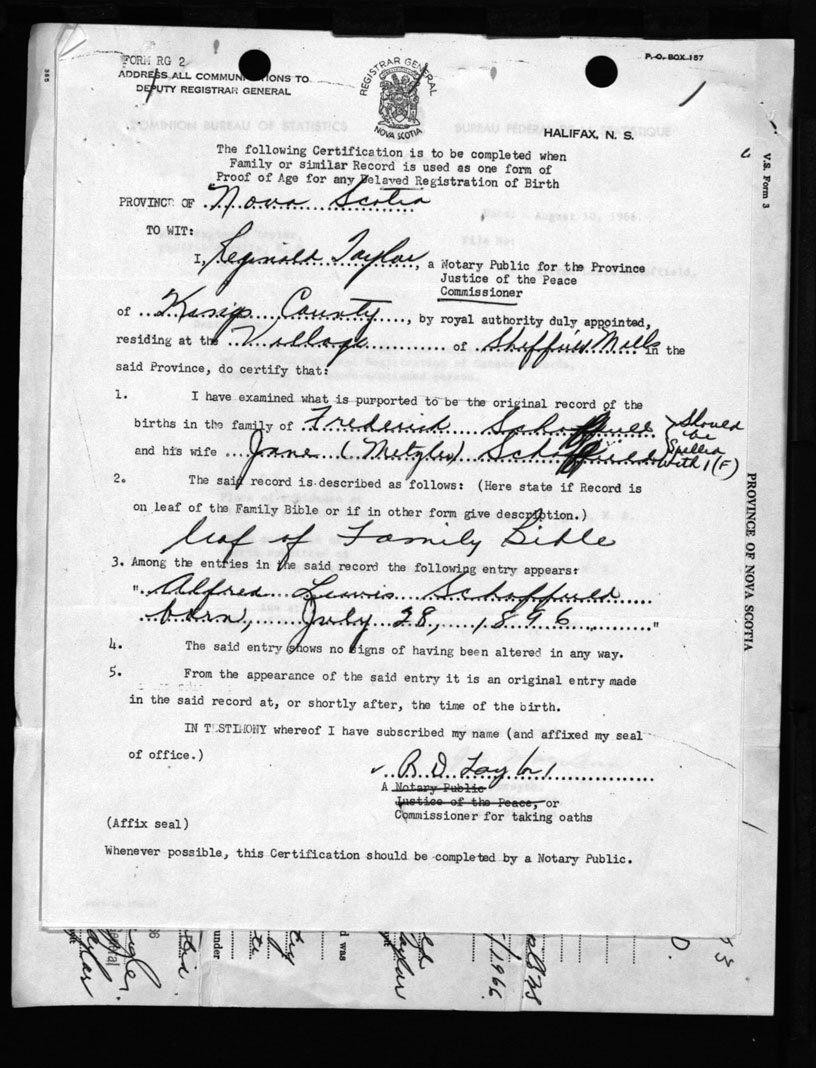 FORM RG 2
ADDRESS ALL COMMUNICATIONS TO
DEPUTY REGISTRAR GENERAL
REGISTRAR GENERAL
NOVA SCOTIA
P. O. BOX 157
HALIFAX, N. S.
385
V.S. Form 3
PROVINCE OF NOVA SCOTIA
DOMINION BUREAU OF STATISTICS
August 10, 1966.
File No:
The following Certification is to be completed when
Family or similar Record is used as one form of
Proof of Age for any Delayed Registration of Birth
PROVINCE OF Nova Scotia
TO WIT:
I, Reginald Taylor, a Notary Public for the Province
Justice of the Peace
Commissioner
of Kings County, by royal authority duly appointed,
residing at the Village of Sheffield Mills in the
said Province, do certify that:
1. I have examined what is purported to be the original record of the
births in the family of Frederick
Should
be
Spelled
with 1 (F)
and his wife Jane (Metzler) Schofield
2. The said record is described as follows: (Here state if Record is
on leaf of the Family Bible or if in other form give description.)
leaf of Family Bible
3. Among the entries in the said record the following entry appears:
" Alfred Lewis Schoffield
born, July 28, 1896 "
4. The said entry shows no signs of having been altered in any way.
5. From the appearance of the said entry it is an original entry made
in the said record at, or shortly after, the time of the birth.
IN TESTIMONY whereof I have subscribed my name (and affixed my seal
of office.)
R D Taylor
A Notary Public
Justice of the Peace, or
Commissioner for taking oaths
(Affix seal)
Whenever possible, this Certification should be completed by a Notary Public.
under
d was
1966
D.